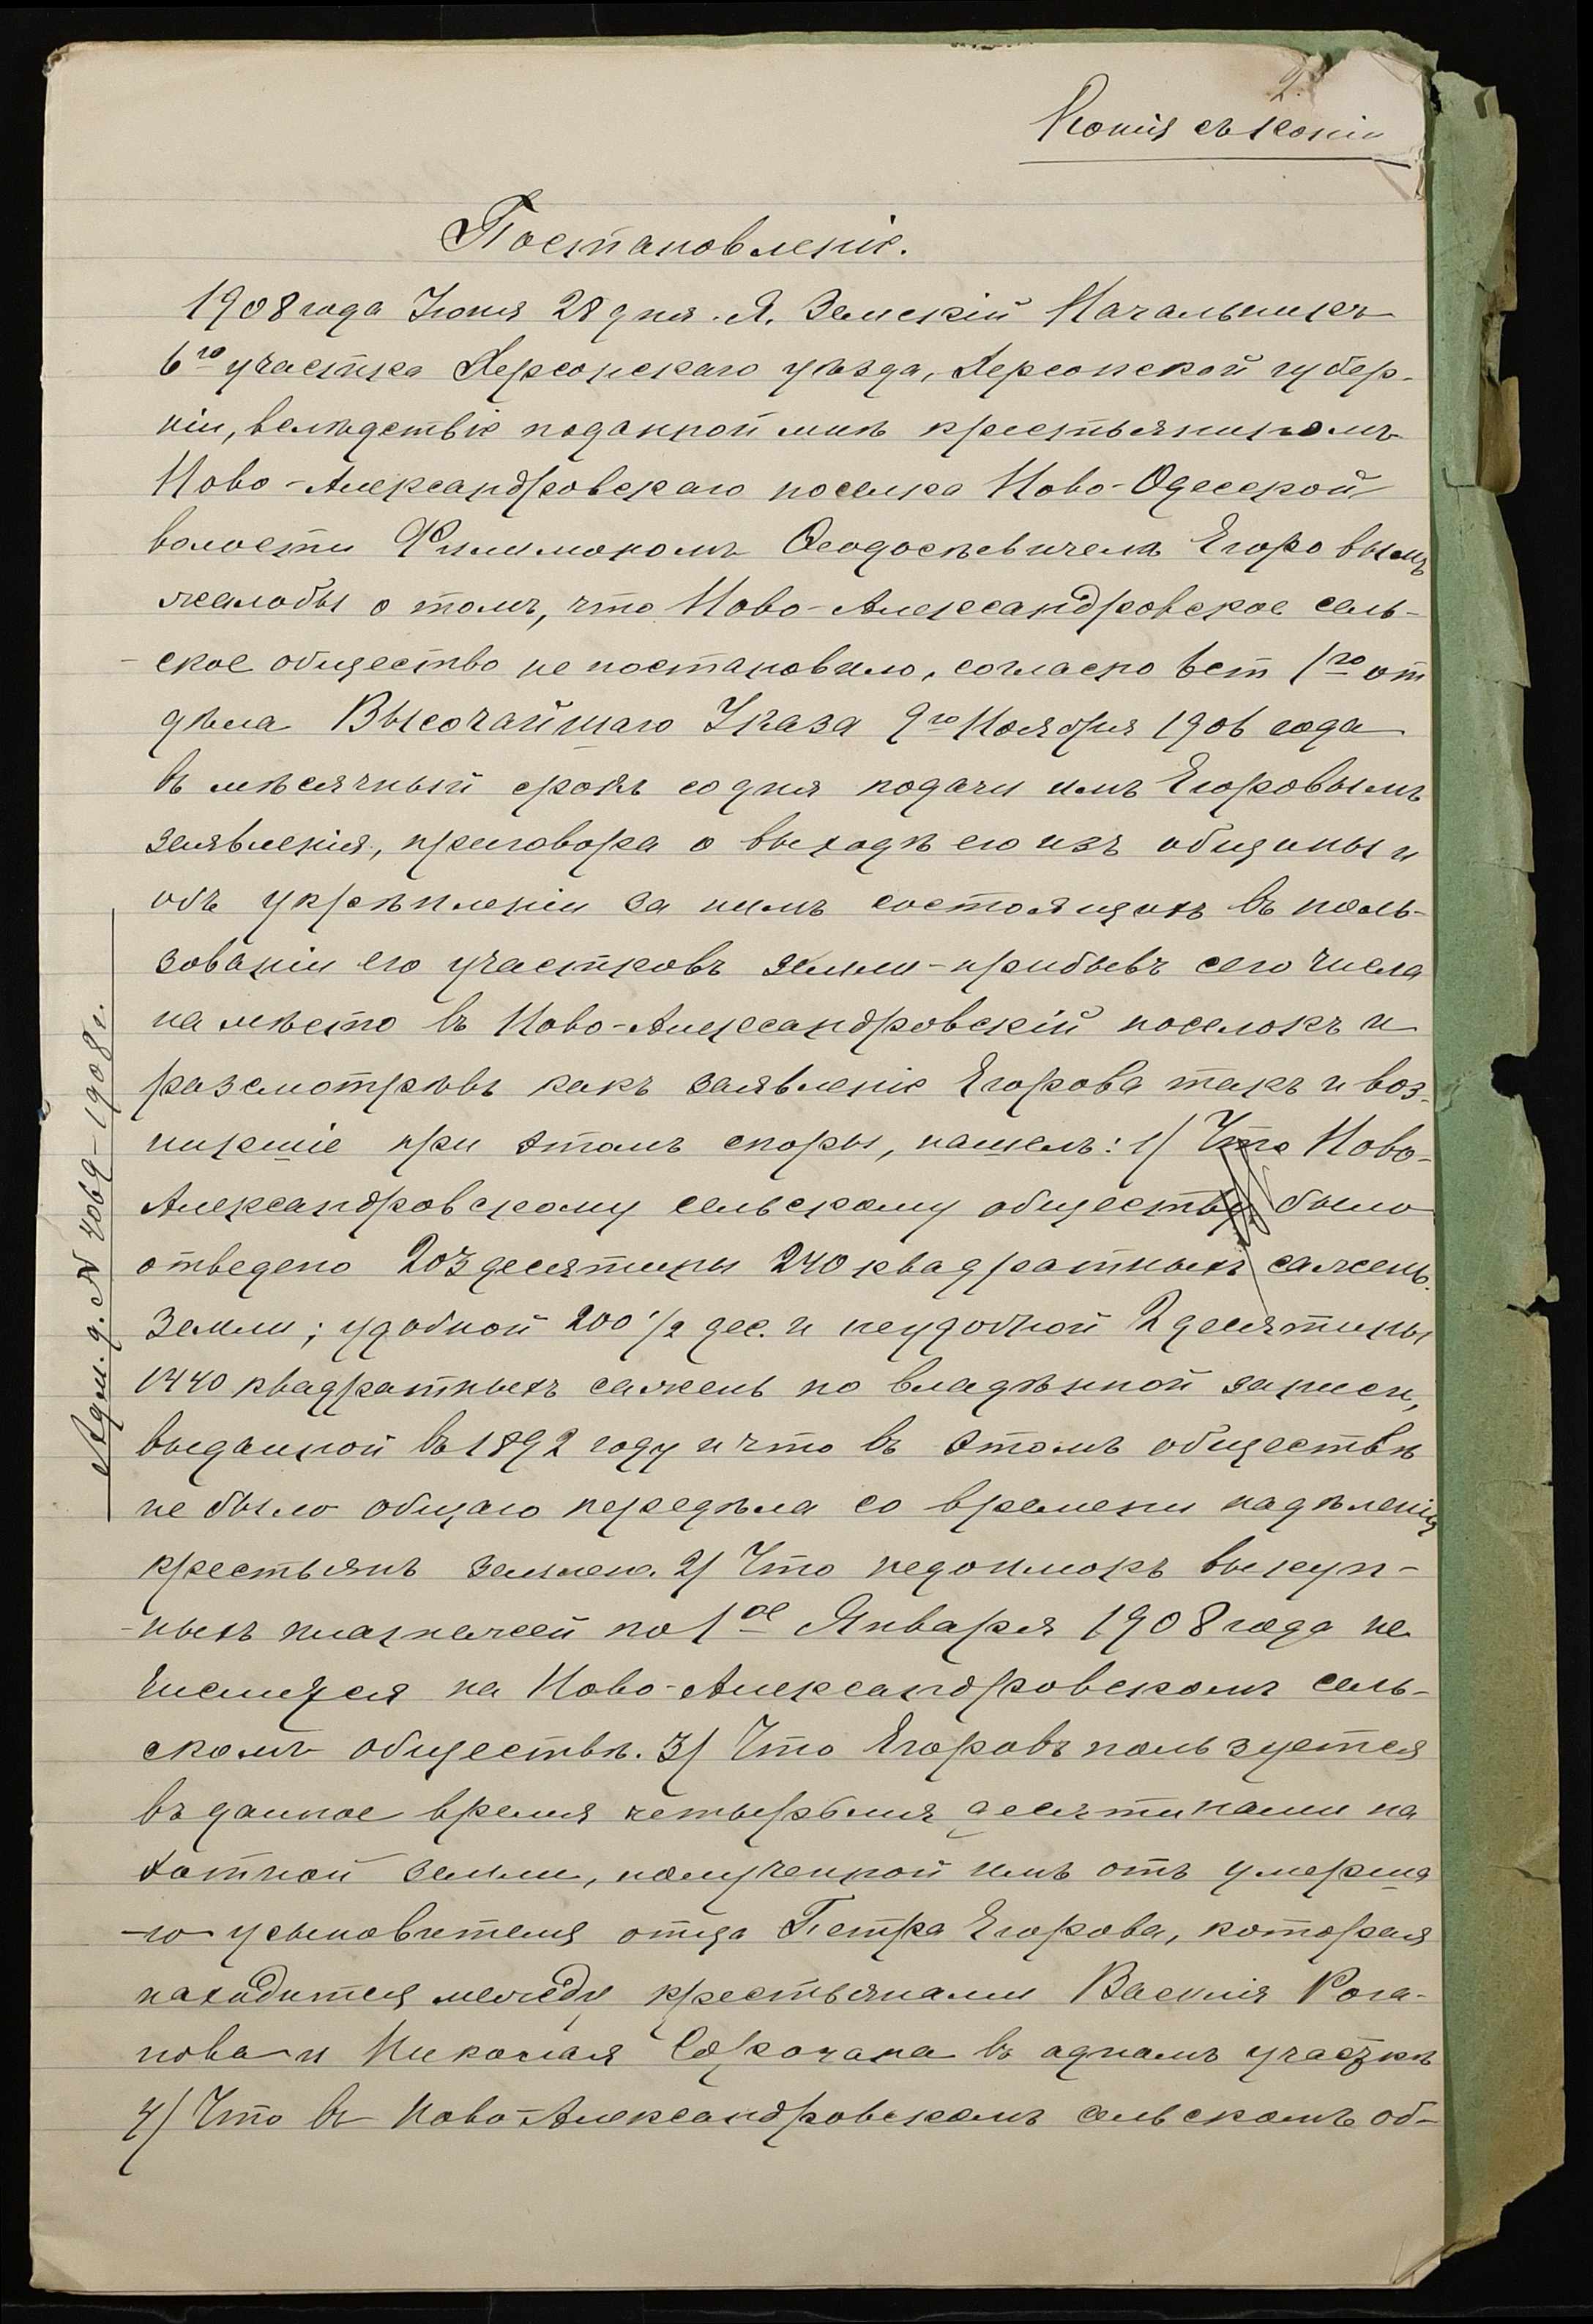 2.
Копія съ копіи
Постановленіе.
1908 года Іюня 28 дня. Я, Земскій Начальникъ
6го участка Херсонскаго уѣзда, Херсонской губер-
ніи, вслѣдствіе поданной мнѣ крестьяниномъ
Ново-Александровскаго поселка Ново-Одесской
волости Филимономъ Ѳеодосьевичемъ Егоровымъ
жалобы о томъ, что Ново-Александровское сель-
ское общество не постановило, согласно 6 ст 1го от
дѣла Высочайшаго Указа 9го Ноября 1906 года
въ мѣсячный срокъ со дня подачи имъ Егоровымъ
заявленія, приговора о выходѣ его изъ общины и
объ укрѣпленіи за нимъ состоящихъ въ поль-
зованіи его участковъ земли - прибывъ сего числа
на мѣсто въ Ново-Александровскій поселокъ и
разсмотрѣвъ какъ заявленіе Егорова такъ и воз-
никшіе при этомъ споры, нашелъ: 1/ Что Ново-
Александровскому сельскому обществу было
отведено 203 десятины 240 квадратныхъ сажень
земли; удобной 200 1/2 дес. и неудобной 2 десятины
1440 квадратныхъ сажень по владѣнной записи,
выданной въ 1892 году и что въ этомъ обществѣ
не было общаго передѣла со времени надѣленія
крестьянъ землею. 2/ Что недоимокъ выкуп-
ныхъ платежей по 1ое Января 1908 года не
числится на Ново-Александровскомъ сель-
скомъ обществѣ. 3/ Что Егоровъ пользуется
въ данное время четырьмя десятинами па
хотной земли, полученной имъ отъ умерша
го усыновителя отца Петра Егорова, которая
находится между крестьянами Василія Рога-
нова и Николая Сорочана въ одномъ участкѣ
4/ Что въ Ново-Александровскомъ сельскомъ об-
Адм. д. N 4069-1908 г.